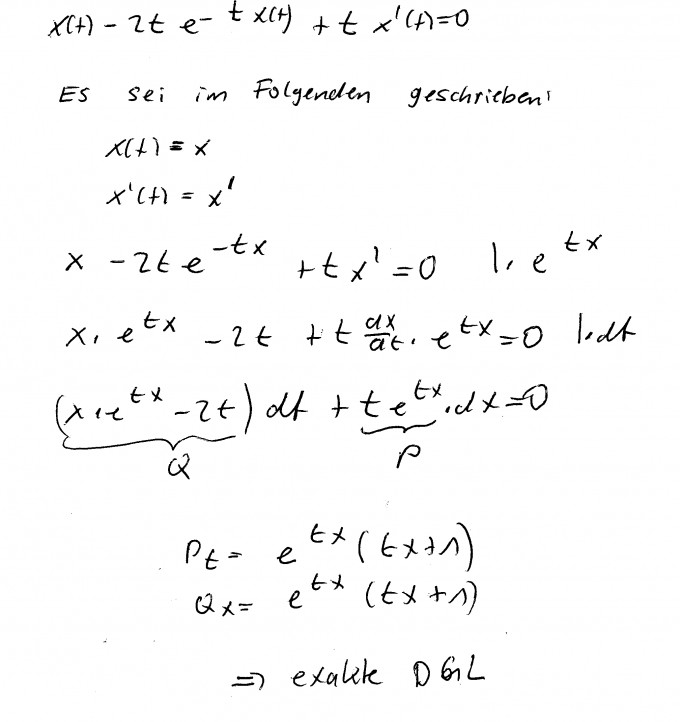 x(t) - 2t e- t x(t) + t x'(t)=0
Es sei im Folgenden geschrieben:
x(t) = x
x'(t) = x'
x - 2t e^{-tx} + t x' = 0 |· e^{tx}
x · e^{tx} - 2t + t dx/dt · e^{tx} = 0 |·dt
(x · e^{tx} - 2t) dt + t e^{tx} · dx = 0
Q P
P_t = e^{tx} (tx+1)
Q_x = e^{tx} (tx+1)
⇒ exakte DGL